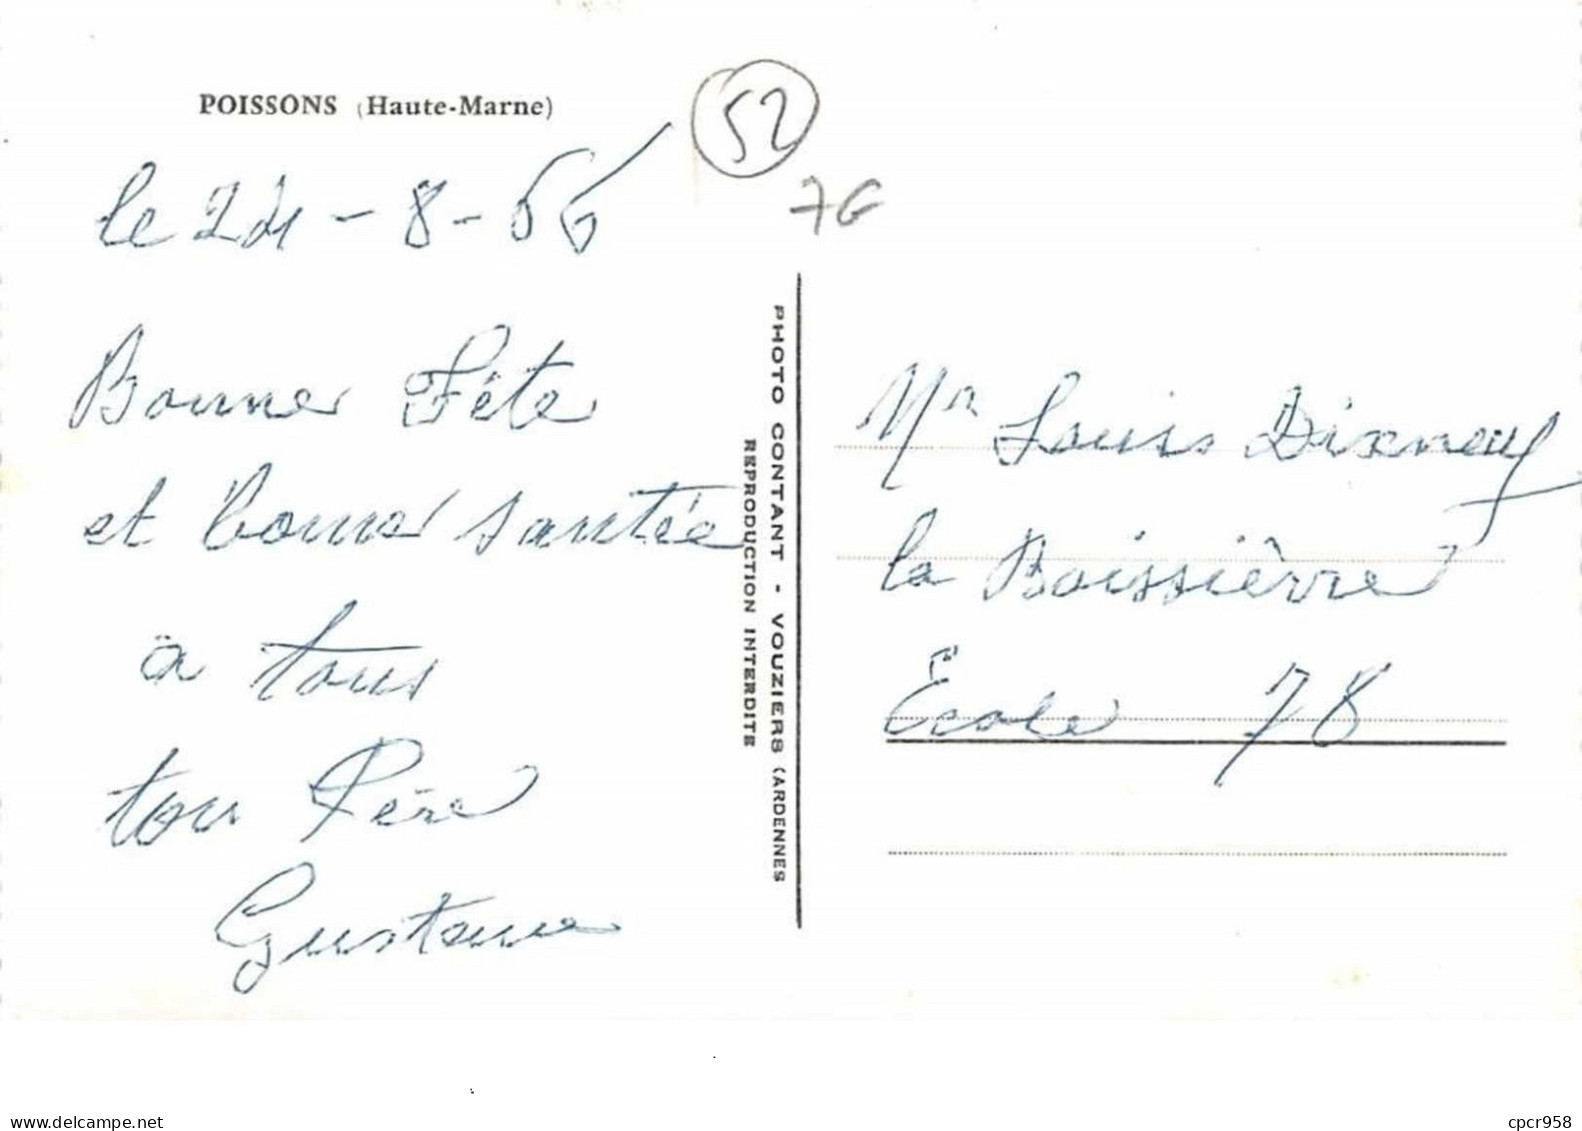 POISSONS (Haute-Marne)
52
7G
le 24-8-66
Bonne Fête
et bonne santée
à tous
ton Père
Gustave
PHOTO CONTANT - VOUZIERS (ARDENNES
REPRODUCTION INTERDITE
Mr Louis
la Boissièrre
École 78
www.delcampe.net
cpcr958